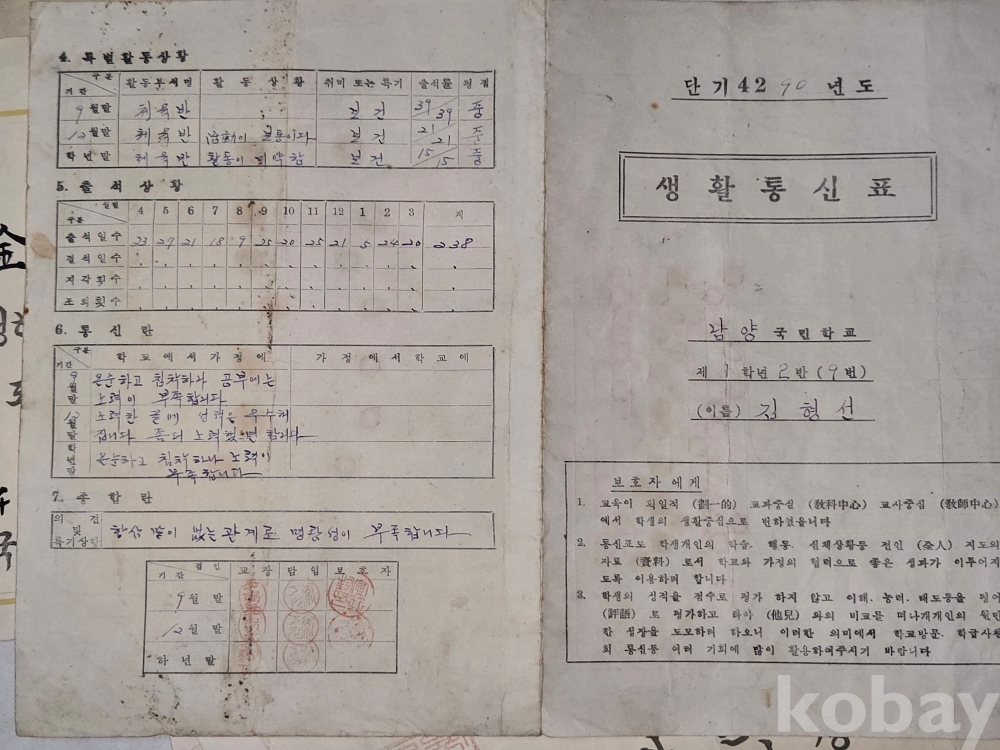 4. 특별활동상황
구분 기간 활동부서명 활동상황 취미 또는 특기 출석률 평점
9월말 체육반 보건 39/39 중
12월말 체육반 活動이 보통이다 보건 21/21 중
학년말 체육반 활동이 미약함 보건 15/15 중
5. 출석상황
월별 구분 4 5 6 7 8 9 10 11 12 1 2 3 계
출석일수 23 27 21 18 9 25 20 25 21 5 24 20 238
결석일수
지각횟수
조퇴횟수
6. 통신란
구분 기간 학교에서가정에 가정에서학교에
9월말 온순하고 침착하나 공부에는
노력이 부족합니다
12월말 노력한 끝에 성적은 우수해
집니다 좀더 노력했으면 합니다
학년말 온순하고 침착하나 노력이
부족합니다
7. 종합란
의견 및 특기사항 항상 말이 없는 관계로 명랑성이 부족합니다
기간 교장 담임 보호자
9월말
12월말
학년말
단기 4290년도
생활통신표
국민학교
제1학년 2반 (9번)
(이름) 김형선
보호자에게
1. 교육이 획일적 (劃一的) 교과중심 (敎科中心) 교사중심 (敎師中心)
에서 학생의 생활중심으로 변하였읍니다
2. 통신표도 학생개인의 학습. 행동. 신체상황등 전인 (全人) 지도의
자료 (資料) 로서 학교와 가정의 협력으로 좋은 성과가 이루어지
도록 이용하려 합니다
3. 학생의 성적을 점수로 평가 하지 않고 이해. 능력. 태도등을 평어
(評語) 로 평가하고 타아 (他兒) 와의 비교를 떠나개개인의 원만
한 성장을 도모하려 하오니 이러한 의미에서 학교방문. 학급사원
회 통신등 여러 기회에 많이 활용하여주시기 바랍니다
kobay